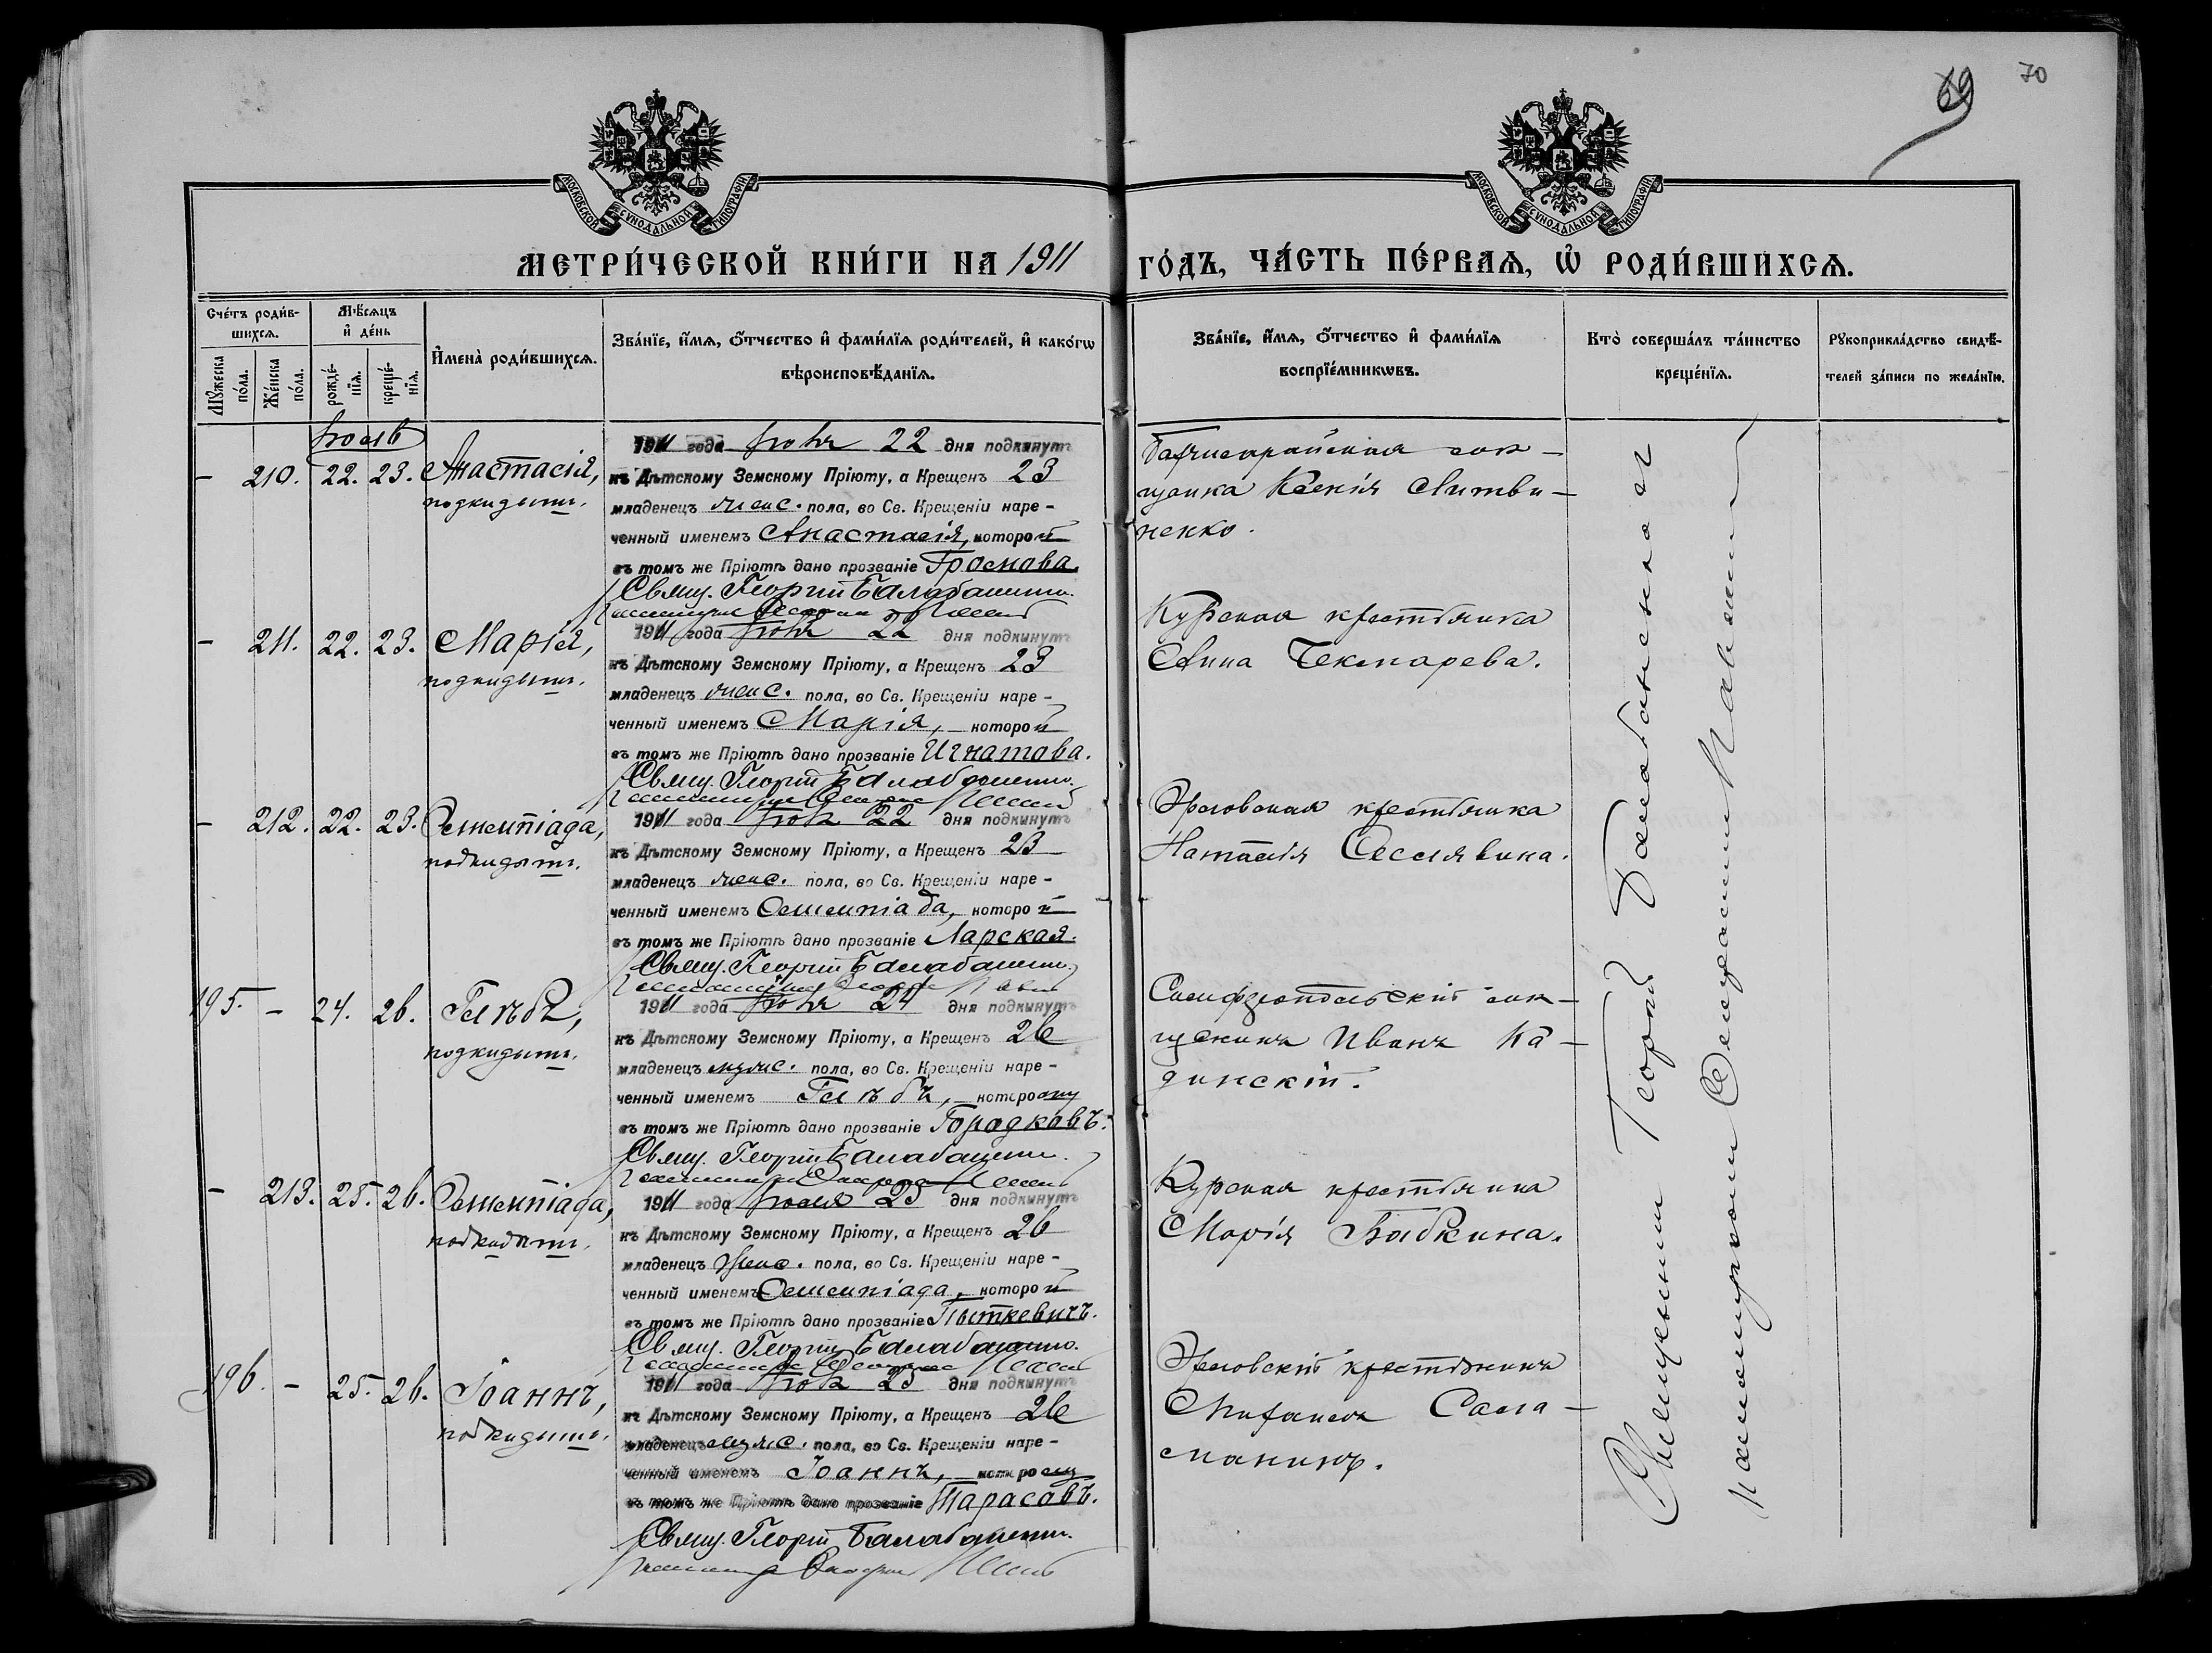 69
70
МОСКОВСКОЙ СѴНОДАЛЬНОЙ ТИПОГРАФІИ
МОСКОВСКОЙ СѴНОДАЛЬНОЙ ТИПОГРАФІИ
МЕТРИ́ЧЕСКОЙ КНИ́ГИ НА 1911 ГО́ДЪ, ЧА́СТЬ ПЕ́РВАѦ, Ѡ҆ РОДИ́ВШИХСѦ.
Сче́тъ роди́в-
шихсѧ.
Мꙋжеска по́ла.
Же́нска по́ла.
Мѣ́сѧцъ
и҆ де́нь
рожде́-
нїѧ.
креще́-
нїѧ.
И҆мена̀ роди́вшихсѧ.
Зва́нїе, и҆́мѧ, ѻ҆́тчество и҆ фами́лїѧ роди́телей, и҆ како́гѡ
вѣроисповѣ́данїѧ.
Зва́нїе, и҆́мѧ, ѻ҆́тчество и҆ фами́лїѧ
воспрїе́мникѡвъ.
Кто̀ соверша́лъ та́инство
креще́нїѧ.
Рꙋкоприкла́дство свидѣ́-
телей за́писи по жела́нїю.
Іюль
- 210. 22. 23. Анастасія,
подкидышъ.
1911 года Іюля 22 дня подкинутъ
къ Дѣтскому Земскому Пріюту, а Крещенъ 23
младенецъ женс. пола, во Св. Крещеніи наре-
ченный именемъ Анастасія, которой
въ томъ же Пріютѣ дано прозваніе Громова.
Свящ. Георгій Балабаненко.
Бахчисарайская мѣ-
щанка Ксенія Литви-
ненко.
- 211. 22. 23. Марія,
подкидышъ.
1911 года Іюля 22 дня подкинутъ
къ Дѣтскому Земскому Пріюту, а Крещенъ 23
младенецъ женс. пола, во Св. Крещеніи наре-
ченный именемъ Марія, которой
въ томъ же Пріютѣ дано прозваніе Игнатова.
Свящ. Георгій Балабаненко.
Курская крестьянка
Анна Чекмарева.
- 212. 22. 23. Олимпіада,
подкидышъ.
1911 года Іюля 22 дня подкинутъ
къ Дѣтскому Земскому Пріюту, а Крещенъ 23
младенецъ женс. пола, во Св. Крещеніи наре-
ченный именемъ Олимпіада, которой
въ томъ же Пріютѣ дано прозваніе Ларская.
Свящ. Георгій Балабаненко.
Орловская крестьянка
Наталія Селявина.
195. - 24. 26. Глѣбъ,
подкидышъ.
1911 года Іюля 24 дня подкинутъ
къ Дѣтскому Земскому Пріюту, а Крещенъ 26
младенецъ мужс. пола, во Св. Крещеніи наре-
ченный именемъ Глѣбъ, которому
въ томъ же Пріютѣ дано прозваніе Городковъ.
Свящ. Георгій Балабаненко.
Симферопольскій мѣ-
щанинъ Иванъ Ка-
динскій.
- 213. 25. 26. Олимпіада,
подкидышъ.
1911 года Іюля 25 дня подкинутъ
къ Дѣтскому Земскому Пріюту, а Крещенъ 26
младенецъ Женс. пола, во Св. Крещеніи наре-
ченный именемъ Олимпіада, которой
въ томъ же Пріютѣ дано прозваніе Пыткевичъ.
Свящ. Георгій Балабаненко.
Курская крестьянка
Марія Бабкина.
196. - 25. 26. Іоаннъ,
подкидышъ.
1911 года Іюля 25 дня подкинутъ
къ Дѣтскому Земскому Пріюту, а Крещенъ 26
младенецъ мужс. пола, во Св. Крещеніи наре-
ченный именемъ Іоаннъ, которому
въ томъ же Пріютѣ дано прозваніе Тарасовъ.
Свящ. Георгій Балабаненко.
Орловскій крестьянинъ
Митрофанъ
Священникъ Георгій Балабаненко и